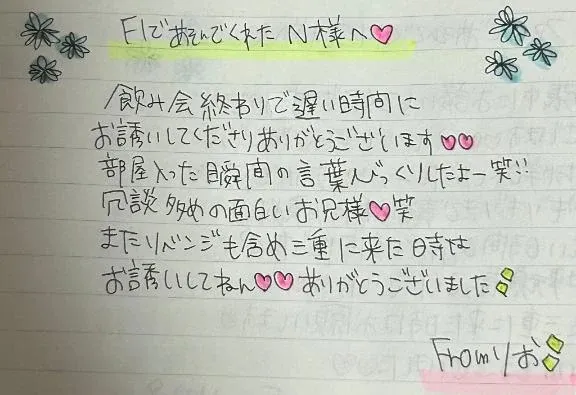 F1であそんでくれた N様へ♥
飲み会終わりで遅い時間に
お誘いしてくださりありがとうございます♥♥
部屋入った瞬間の言葉びっくりしたよー笑!!
冗談多めの面白いお兄様♥笑
またリベンジも含め三重に来た時は
お誘いしてねん♥♥ありがとうございました
Fromりお